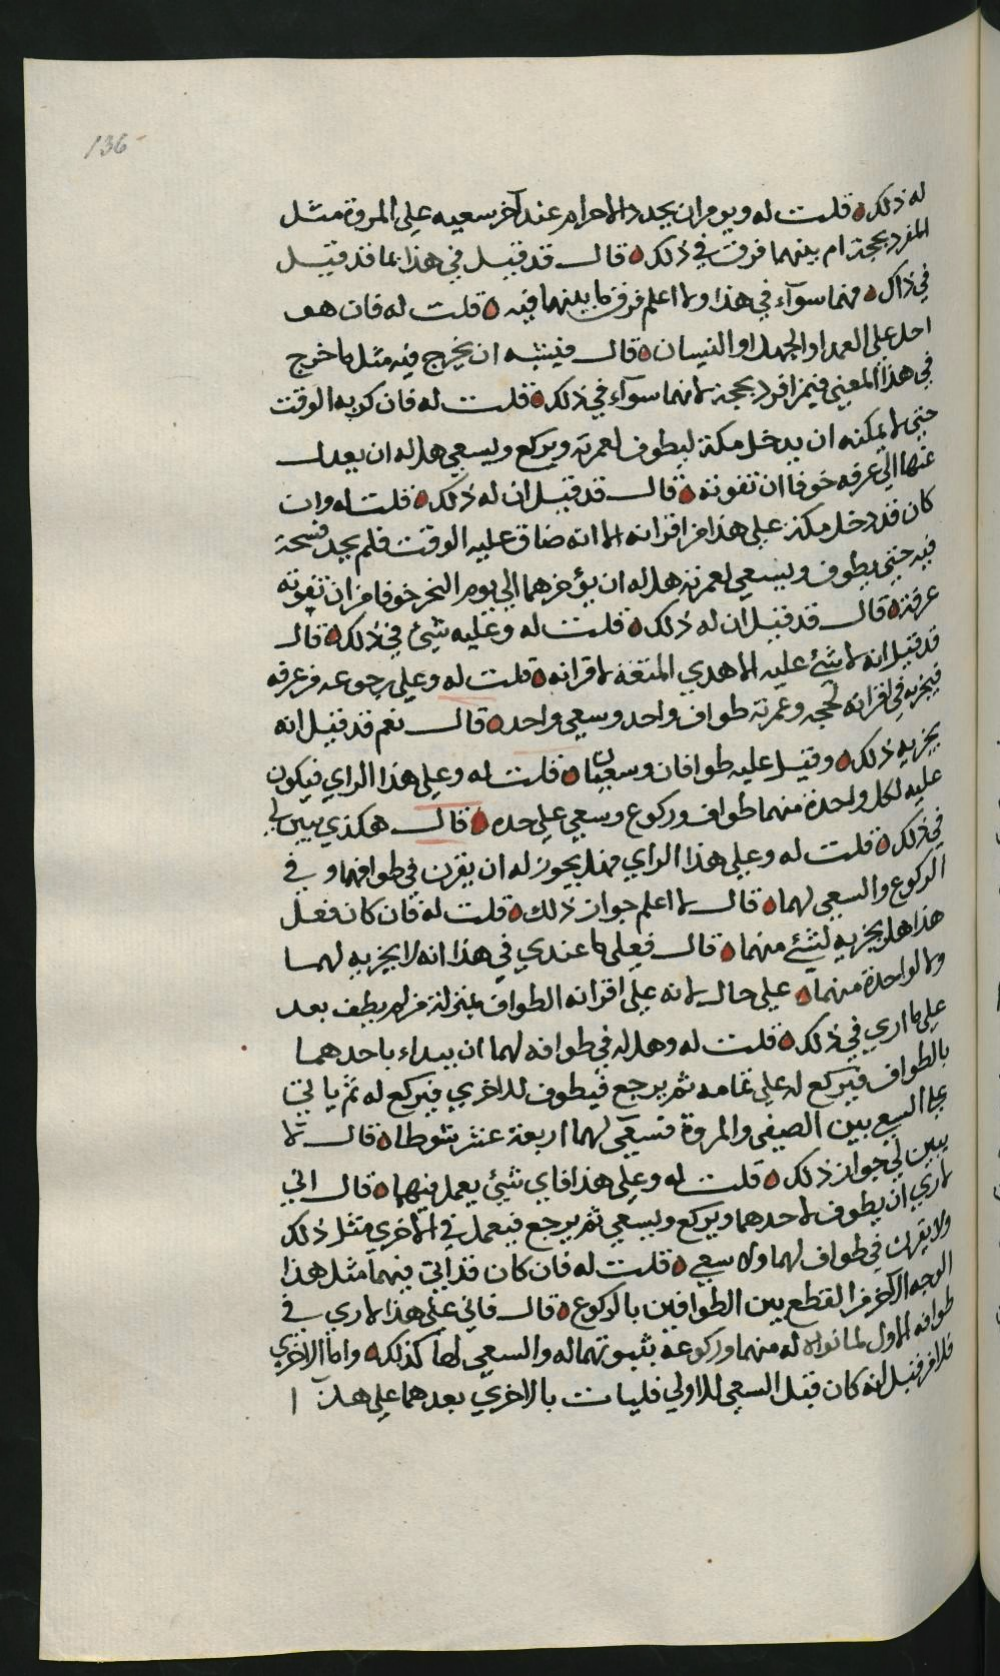 136
له ذلك قلت له ويومر ان يجدد الاحرام عند آخر سعيه على المروة مثل
المفرد بحجة ام بينهما فرق في ذلك قال قد قيل في هذا بما قد قيل
في ذاك فهما سوآء في هذا ولا اعلم فرق ما بينهما فيه قلت له فان هو
احل على العمد او الجهل او النسيان قال فيشبه ان يخرج فيه مثل ما خرج
في هذا المعنى فيمن افرد بحجة لانهما سوآء في ذلك قلت له فان كربه الوقت
حتى لا يمكنه ان يدخل مكة ليطوف لعمرته ويركع ويسعى هل له ان يعدل
عنها الى عرفه خوفا ان تفوته قال قد قيل ان له ذلك قلت له وان
كان قد دخل مكة على هذا من اقرانه الا انه ضاق عليه الوقت فلم يجد فسحة
فيه حتى يطوف ويسعى لعمرته هل له ان يؤخرهما الى يوم النحر خوفا من ان تفوته
عرفة قال قد قيل ان له ذلك قلت له وعليه شيئ في ذلك قال
قد قيل انه لا شئ عليه الا هدي المتعة لاقرانه قلت له وعلى رجوعه من عرفه
فيجزيه في اقرانه لحجه وعمرته طواف واحد وسعي واحد قال نعم قد قيل انه
يجزيه ذلك وقيل عليه طوافان وسعيان قلت له وعلى هذا الراي فيكون
عليه لكل واحدة منهما طواف وركوع وسعي على حده قال هكذي يبين لي
في ذلك قلت له وعلى هذا الراي فهل يجوز له ان يقرن في طوافهما وفي
الركوع والسعي لهما قال لا اعلم جواز ذلك قلت له فان كان فعل
هذا هل يجزيه لشئ منهما قال فعلى ما عندي في هذا انه لا يجزيه لهما
ولا لواحدة منهما على حال لانه على اقرانه الطواف بمنزلة من لم يطف بعد
على ما اري في ذلك قلت له وهل له في طوافه لهما ان يبداء باحدهما
بالطواف فيركع له على تمامه ثم يرجع فيطوف للاخري فيركع له ثم ياتي
على السعي بين الصفى والمروة فتسعى لهما اربعة عشر شوطا قال لا
يبين لي جواز ذلك قلت له وعلى هذا فاي شيئ يعمل فيهما قال اني
لا ري ان يطوف لاحدهما ويركع ويسعى ثم يرجع فيعمل في الاخري مثل ذلك
ولا يقرن في طواف لهما ولا سعي قلت له فان كان قد اتى فيهما مثل هذا
الوجه الاخر من القطع بين الطوافين بالركوع قال فاني على هذا لا ري في
طوافه الاول لما نواه له منهما وركوعه بثبوتهما له والسعي لها كذلك واما الاخري
فلا من قبل انه كان قبل السعي للاولى فليات بالاخري بعدهما على هذا